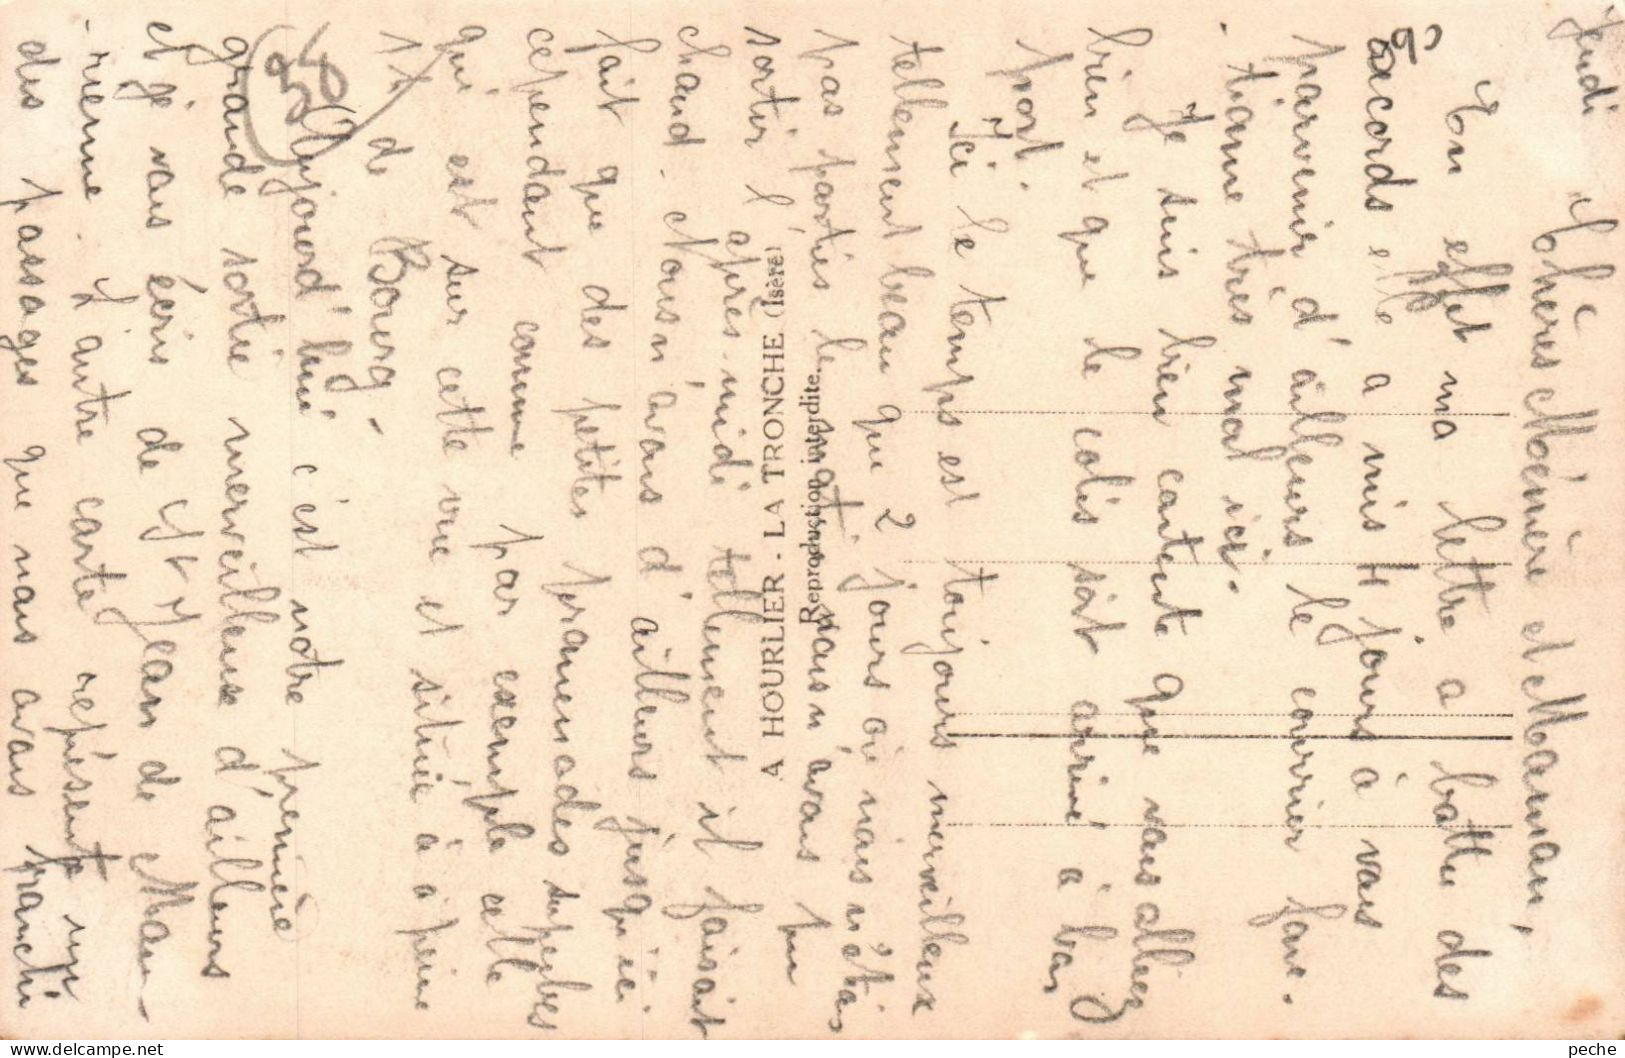 Jeudi
Chères Mémère et Maman,
En effet ma lettre a battu des
records elle a mis 4 jours à vous
parvenir d'ailleurs le courrier fonc-
tionne très mal ici.
Je suis bien contente que vous alliez
bien et que le colis soit arrivé à bon
port.
Ici le temps est toujours merveilleux
tellement beau que 2 jours où nous n'étions
pas parties le matin nous n'avons pu
sortir l'après-midi tellement il faisait
chaud. Nous n'avons d'ailleurs jusqu'ici
fait que des petites promenades superbes
cependant comme par exemple cette
qui est sur cette vue et située à à peine
1 k de Bourg-
Aujourd'hui c'est notre première
grande sortie merveilleuse d'ailleurs
et je vous écris de St Jean de Mau-
rienne. L'autre carte représente un
des passages que nous avons franchi
A HOURLIER - LA TRONCHE (Isère)
Reproduction interdite
peche